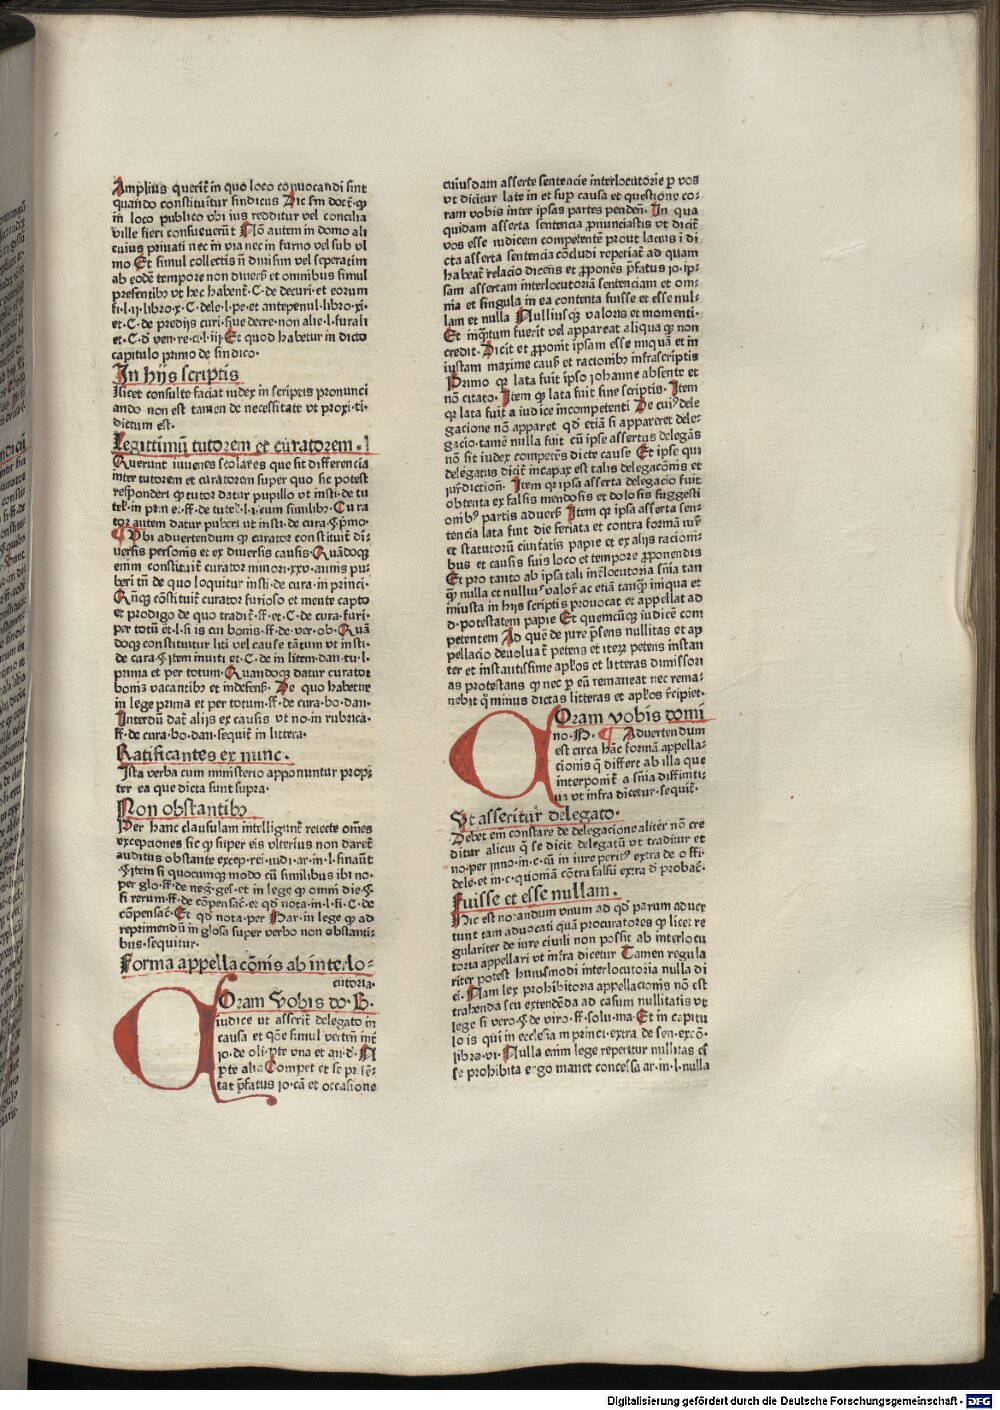 Amplius querit̄ in quo loco co ɲuocandi sint
quando constituitur sindicus Dic s̄m doct̄ ꝙ
in loco publico vbi ius redditur vel concilia
ville fieri consueuerūt Nō autem in domo ali
cuius priuati nec in via nec in furno vel sub vl
mo Et simul collectis n̄ diuisim vel seperatim
ab eodē tempore non diuers̄ et omnibus simul
presentibꝫ vt hec habent̄ C· de decuri· et eorum
fi·l·ij·libro·x·C·dele·l·pe·et antepenul·libro·xi·
et·C·de predijs curi·siue decre·non alie·l·furali
et·C·d̄ ven·re·ci·l·iij·Et quod habetur in dicto
capitulo primo de sindico·
In hijs scriptis
Isicet consulte faciat iudex in scriptis pronunci
ando non est tamen de necessitate vt proxi·ti·
dictum est·
Legittimū tutorem et curatorem·
Querunt iuuenes scolares que sit differencia
inter tutorem et curatorem super quo sic potest
responderi ꝙ tutor datur pupillo vt insti·de tu
Cura
tor autem datur puberi vt insti·de cura·§·pͥmo·
¶Vbi aduertendum ꝙ curator constituit̄ di
uersis personis et ex diuersis causis·Quādoqꝫ
enim constituit̄ curator minori·xxv·annis pu
beri tn̄ de quo loquitur insti·de cura·in princi·
Qn̄qꝫ cōstituit̄ curator furioso et mente capto
et prodigo de quo tradit̄·ff·et·C·de cura·furi·
per totū et·l·si is cui bonis·ff·de·ver·ob·Quā
doqꝫ constituitur liti vel cause tātum vt insti·
de cura·§·item inuiti et·C·de in litem·dan·tu·l·
prima et per totum·Quandoqꝫ datur curator
bonis vacantibus et indefens̄·De quo habetur
in lege prima et per totum·ff·de cura·bo·dan·
Interdū dat̄ alijs ex causis vt no·in rubrica·
ff·de cura·bo·dan·sequit̄ in littera·
Ratificantes ex nunc·
Ista verba cum ministerio apponuntur prop̄
ter ea que dicta sunt supra·
Non obstantibꝫ
Per hanc clausulam intelligunt̄ reiecte om̄es
excepciones sic ꝙ super eis vlterius non daret̄
auditus obstante excep·rei·iudi·ar·in·l·sinaūt
§·item si quocumqꝫ modo cū similibus ibi no·
per glo·ff·de neg̃·ges·et in lege ꝙ omni die·§·
si rerum·ff·de cōpensac̄·et qd̓ nota·in·l·fi·C·de
cōpensac̄·Et qd̓ nota·per Bar·in lege ꝙ ad
reprimendū in glosa super verbo non obstanti·
bus·sequitur·
Forma appellacōnis ab interlo-
cutoria·
COram Vobis do·B·
iudice ut asserit̄ delegato in
causa et qōne simul verten̄ int̄
io·de oli·pte vna et an·d·A
pte alia Compet et se pr̄sē-
tat p̄fatus io·cā et occasione
cuiusdam asserte sentencie interlocutorie ꝑ vos
vt dicitur late in et suꝑ causa et questione co-
ram vobis inter ipsas partes penden̄·In qua
quidam asserta sentencia pronunciastis vt dicit̄
vos esse iudicem competentē prout lacius ī di
cta asserta sentencia cōcludi reperiat̄ ad quam
habeat̄ relacio dicens et ꝓponēs p̄fatus io·ip-
sam assertam interlocutoriā sentenciam et om-
nia et singula in ea contenta fuisse et esse nul-
lam et nulla Nulliusqꝫ valoris et momenti·
Et inqꝫtum fuerit vel appareat aliqua ꝙ non
credit·Dicit et ꝓponit̄ ipsam esse iniquā et in
iustam maxime caus̄ et racionibꝫ infrascriptis
Primo qꝛ lata fuit ipso iohanne absente et
nō citato·Item ꝙ lata fuit sine scriptis·Item
qꝛ lata fuit a iudice incompetenti De cuiꝰ dele
gacione nō apparet qd̓ etiā si appareret dele-
gacio·tamē nulla fuit cū ipse assertus delegās
nō sit iudex competēs dicte cause Et ipse qui
delegatus dicit̄ incapax est talis delegacōnis et
iurꝭdiction̄·Item qꝛ ipsa asserta delegacio fuit
obtenta ex falsis mendosis et dolosis suggesti
onibꝫ partis aduers̄ Item qꝛ ipsa asserta sen-
tencia lata fuit die feriata et contra formā iurꝭ
et statutorū ciuitatis papie et ex alijs racioni-
bus et causis suis loco et tempore ꝓponendis
Et pro tanto ab ipsa tali int̄locutoria sn̄ia tan
qꝫ nulla et nulliuꝰ valorꝭ ac etiā tanqꝫ iniqua et
iniusta in hijs scriptis prouocat et appellat ad
d·potestatem papie Et quemcūqꝫ iudicē com
petentem Ad quē de iure p̄sens nullitas et ap
pellacio deuoluat̄ petens et iterꝫ petens instan
ter et instantissime ap̄los et litteras dimissori
as protestans ꝙ nec ꝑ eū remaneat nec rema-
nebit qꝫ minus dictas litteras et ap̄los r̄cipiet·
COram vobis domi
no·B·¶Aduertendum
est circa hāc formā appella-
cionis q̄ differt ab illa que
interponit̄ a sn̄ia diffiniti-
ua vt infra dicetur·sequit̄·
Vt asseritur delegato·
Debet em̄ constare de delegacione aliter nō cre
ditur alicui qͥ se dicit delegatū vt traditur et
no·per inno·in·c·cū in iure peritꝰ extra de offi·
dele·et in·c·quoniā cōtra falsū extra d̓ probac̄·
Fuisse et esse nullam·
Hic est notandum vnum ad qd̓ parum aduer
tunt tam aduocati quā procuratores ꝙ licet re
gulariter de iure ciuili non possit ab interlocu
toria appellari vt infra dicetur Tamen regula
riter potest huiusmodi interlocutoria nulla di
ci·Nam lex prohibitoria appellacionis nō est
trahenda seu extendēda ad casum nullitatis vt
lege si vero·§·de viro·ff·solu·ma·Et in capitu
lo is qui in ecclesia in princi·extra de sen·excō·
libro·vi·Nulla enim lege reperitur nullitas es
se prohibita ergo manet concessa ar·in·l·nulla
Digitalisierung gefördert durch die Deutsche Forschungsgemeinschaft · DFG